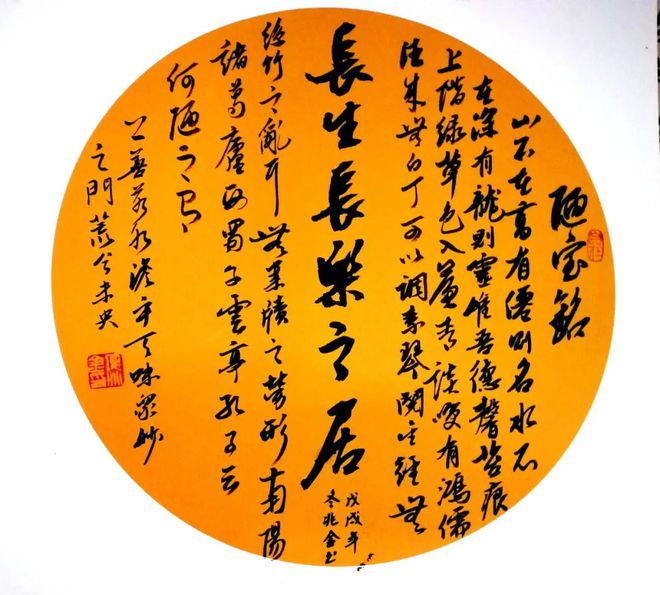 陋室銘
山不在高有僊則名水不
在深有龍則靈惟吾德馨苔痕
上階綠草色入簾青談咲有鴻儒
往来無白丁可以調素琴閱金經無
長生長樂之居
戊戌年
冬兆金书
絲竹之亂耳無案牘之勞形南陽
諸葛廬西蜀子雲亭孔子云
何陋之有
上善若水澹乎其味眾妙
之門荒兮未央